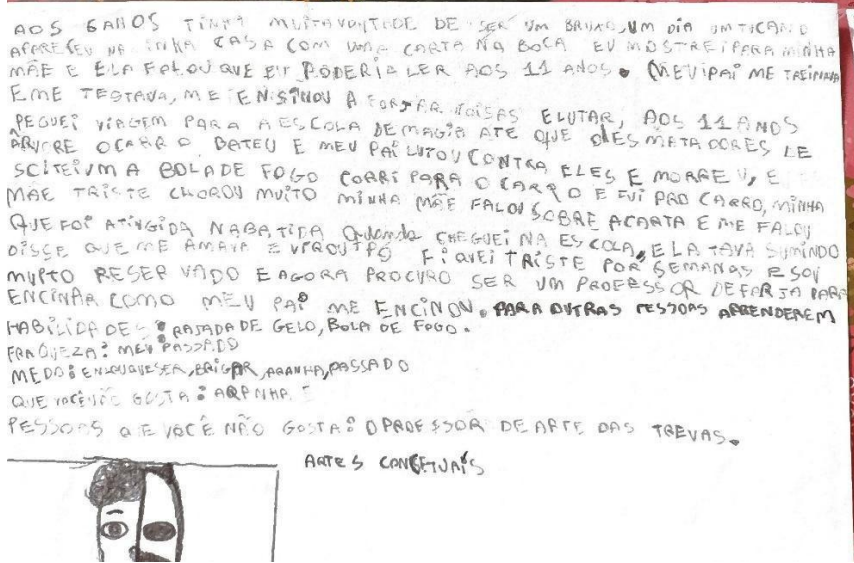 AOS 6 ANOS TINHA MUITA VONTADE DE SER UM BRUXO, UM DIA UM TUCANO
APARECEU NA INHA CASA COM UMA CARTA NA BOCA EU MOSTREI PARA MINHA
MÃE E ELA FALOU QUE EU PODERIA LER AOS 11 ANOS. MEU PAI ME TREINAVA
E ME TESTAVA, ME ENSINOU A FORJAR COISAS E LUTAR, AOS 11 ANOS
PEGUEI VIAGEM PARA A ESCOLA DE MAGIA ATE QUE DES MATADORES LE
ÁRVORE O CARRO BATEU E MEU PAI LUTOU CONTRA ELES E MORREU, E
SCITEI UMA BOLA DE FOGO CORRI PARA O CARRO E FUI PRO CARRO, MINHA
MÃE TRISTE CHOROU MUITO MINHA MÃE FALOU SOBRE A CARTA E ME FALOU
QUE FOI ATINGIDA NA BATIDA Quando CHEGUEI NA ESCOLA, ELA TAVA SUMINDO
DISSE QUE ME AMAVA E VIROU PÓ FIQUEI TRISTE POR SEMANAS E SOU
MUITO RESERVADO E AGORA PROCURO SER UM PROFESSOR DE FORJA PARA
ENCINAR COMO MEU PAI ME ENCINOU. PARA OUTRAS PESSOAS APRENDEREM
HABILIDADES: RAJADA DE GELO, BOLA DE FOGO.
FRAQUEZA: MEU PASSADO
MEDO: ENLOUQUESER, BRIGAR, ARANHA, PASSADO
QUE VOCÊ GOSTA: ARANHA E
PESSOAS QUE VOCÊ NÃO GOSTA: O PROFESSOR DE ARTE DAS TREVAS.
ARTES CONCETUAIS